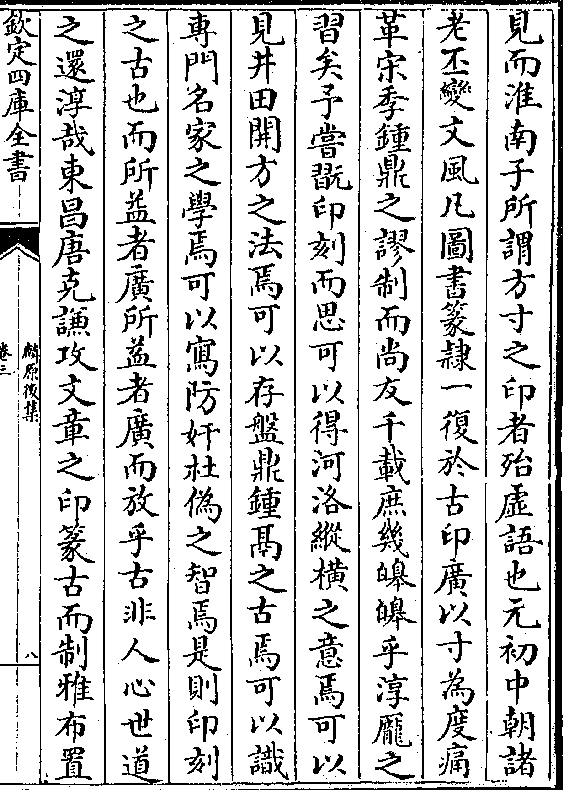 見而淮南子所謂方寸之印者殆虛語也元初中朝諸
老丕變文風凡圖書篆隸一復於古印廣以寸為度痛
革宋季鍾鼎之謬制而尚友千載庶幾皞皞乎淳龐之
習矣予嘗翫印刻而思可以得河洛縱橫之意焉可以
見井田開方之法焉可以存盤鼎鍾鬲之古焉可以識
專門名家之學焉可以寓防奸杜偽之智焉是則印刻
之古也而所益者廣所益者廣而放乎古非人心世道
之還淳哉東昌唐克謙攻文章之印篆古而制雅布置
欽定四庫全書
麟原後集
卷三
八